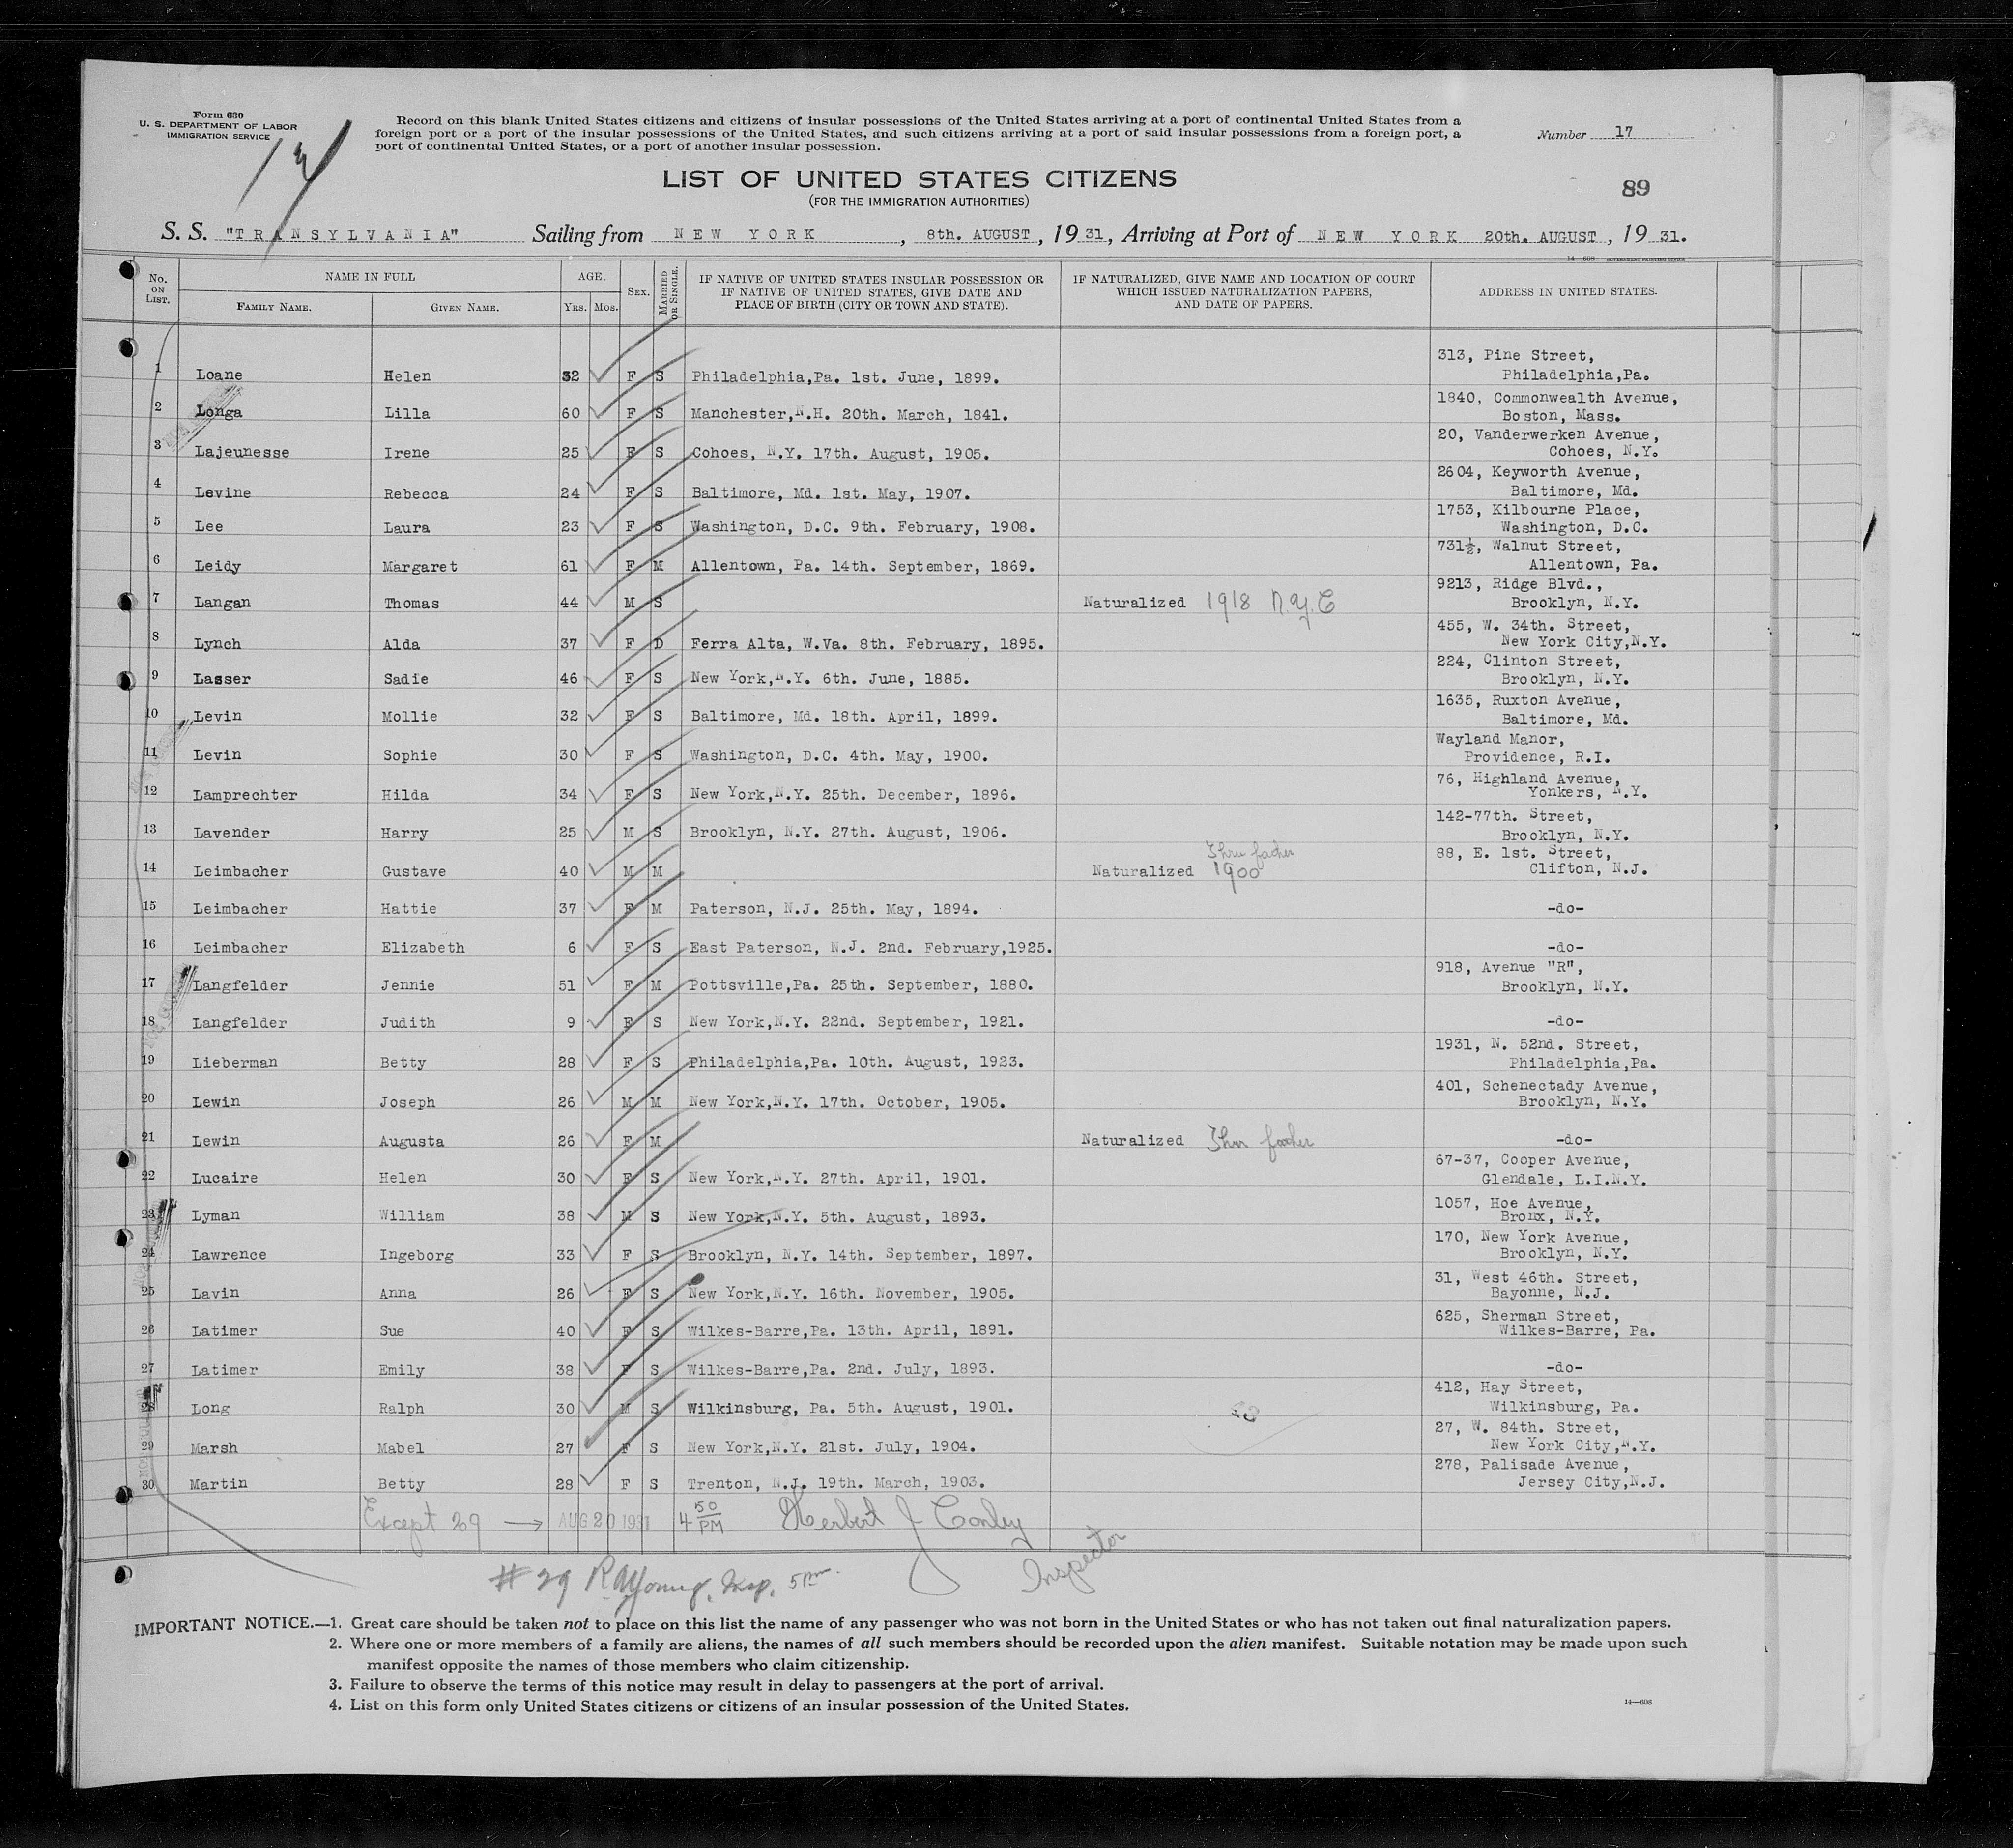 Form 630
U. S. DEPARTMENT OF LABOR
IMMIGRATION SERVICE
Record on this blank United States citizens and citizens of insular possessions of the United States arriving at a port of continental United States from a
foreign port or a port of the insular possessions of the United States, and such citizens arriving at a port of said insular possessions from a foreign port, a
port of continental United States, or a port of another insular possession.
Number 17
LIST OF UNITED STATES CITIZENS
(FOR THE IMMIGRATION AUTHORITIES)
89
S. S. "TRANSYLVANIA" Sailing from NEW YORK, 8th. AUGUST, 1931, Arriving at Port of NEW YORK 20th. AUGUST, 1931.
14—608 GOVERNMENT PRINTING OFFICE
No. ON LIST. NAME IN FULL FAMILY NAME. GIVEN NAME. AGE. YRS. MOS. SEX. MARRIED OR SINGLE. IF NATIVE OF UNITED STATES INSULAR POSSESSION OR IF NATIVE OF UNITED STATES, GIVE DATE AND PLACE OF BIRTH (CITY OR TOWN AND STATE). IF NATURALIZED, GIVE NAME AND LOCATION OF COURT WHICH ISSUED NATURALIZATION PAPERS, AND DATE OF PAPERS. ADDRESS IN UNITED STATES.
1 Loane Helen 32 F S Philadelphia,Pa. 1st. June, 1899. 313, Pine Street, Philadelphia,Pa.
2 Longa Lilla 60 F S Manchester,N.H. 20th. March, 1841. 1840, Commonwealth Avenue, Boston, Mass.
3 Lajeunesse Irene 25 F S Cohoes, N.Y. 17th. August, 1905. 20, Vanderwerken Avenue, Cohoes, N.Y.
4 Levine Rebecca 24 F S Baltimore, Md. 1st. May, 1907. 2604, Keyworth Avenue, Baltimore, Md.
5 Lee Laura 23 F S Washington, D.C. 9th. February, 1908. 1753, Kilbourne Place, Washington, D.C.
6 Leidy Margaret 61 F M Allentown, Pa. 14th. September, 1869. 731½, Walnut Street, Allentown, Pa.
7 Langan Thomas 44 M S Naturalized 1918 N.Y.C 9213, Ridge Blvd., Brooklyn, N.Y.
8 Lynch Alda 37 F D Ferra Alta, W.Va. 8th. February, 1895. 455, W. 34th. Street, New York City,N.Y.
9 Lasser Sadie 46 F S New York,N.Y. 6th. June, 1885. 224, Clinton Street, Brooklyn, N.Y.
10 Levin Mollie 32 F S Baltimore, Md. 18th. April, 1899. 1635, Ruxton Avenue, Baltimore, Md.
11 Levin Sophie 30 F S Washington, D.C. 4th. May, 1900. Wayland Manor, Providence, R.I.
12 Lamprechter Hilda 34 F S New York,N.Y. 25th. December, 1896. 76, Highland Avenue, Yonkers, N.Y.
13 Lavender Harry 25 M S Brooklyn, N.Y. 27th. August, 1906. 142-77th. Street, Brooklyn, N.Y.
14 Leimbacher Gustave 40 M M Naturalized Thru father 1900 88, E. 1st. Street, Clifton, N.J.
15 Leimbacher Hattie 37 F M Paterson, N.J. 25th. May, 1894. -do-
16 Leimbacher Elizabeth 6 F S East Paterson, N.J. 2nd. February,1925. -do-
17 Langfelder Jennie 51 F M Pottsville,Pa. 25th. September, 1880. 918, Avenue "R", Brooklyn, N.Y.
18 Langfelder Judith 9 F S New York,N.Y. 22nd. September, 1921. -do-
19 Lieberman Betty 28 F S Philadelphia,Pa. 10th. August, 1923. 1931, N. 52nd. Street, Philadelphia,Pa.
20 Lewin Joseph 26 M M New York,N.Y. 17th. October, 1905. 401, Schenectady Avenue, Brooklyn, N.Y.
21 Lewin Augusta 26 F M Naturalized Thru father -do-
22 Lucaire Helen 30 F S New York,N.Y. 27th. April, 1901. 67-37, Cooper Avenue, Glendale, L.I.N.Y.
23 Lyman William 38 M S New York,N.Y. 5th. August, 1893. 1057, Hoe Avenue, Bronx, N.Y.
24 Lawrence Ingeborg 33 F S Brooklyn, N.Y. 14th. September, 1897. 170, New York Avenue, Brooklyn, N.Y.
25 Lavin Anna 26 F S New York,N.Y. 16th. November, 1905. 31, West 46th. Street, Bayonne, N.J.
26 Latimer Sue 40 F S Wilkes-Barre,Pa. 13th. April, 1891. 625, Sherman Street, Wilkes-Barre, Pa.
27 Latimer Emily 38 F S Wilkes-Barre,Pa. 2nd. July, 1893. -do-
28 Long Ralph 30 M S Wilkinsburg, Pa. 5th. August, 1901. 412, Hay Street, Wilkinsburg, Pa.
29 Marsh Mabel 27 F S New York,N.Y. 21st. July, 1904. 27, W. 84th. Street, New York City,N.Y.
30 Martin Betty 28 F S Trenton, N.J. 19th. March, 1903. 278, Palisade Avenue, Jersey City,N.J.
Except 29 → AUG 20 1931 4 50 PM Herbert J Conley Inspector
# 29 R A Young, Insp. 5 pm
IMPORTANT NOTICE.—1. Great care should be taken not to place on this list the name of any passenger who was not born in the United States or who has not taken out final naturalization papers.
2. Where one or more members of a family are aliens, the names of all such members should be recorded upon the alien manifest. Suitable notation may be made upon such
manifest opposite the names of those members who claim citizenship.
3. Failure to observe the terms of this notice may result in delay to passengers at the port of arrival.
4. List on this form only United States citizens or citizens of an insular possession of the United States.
14—608